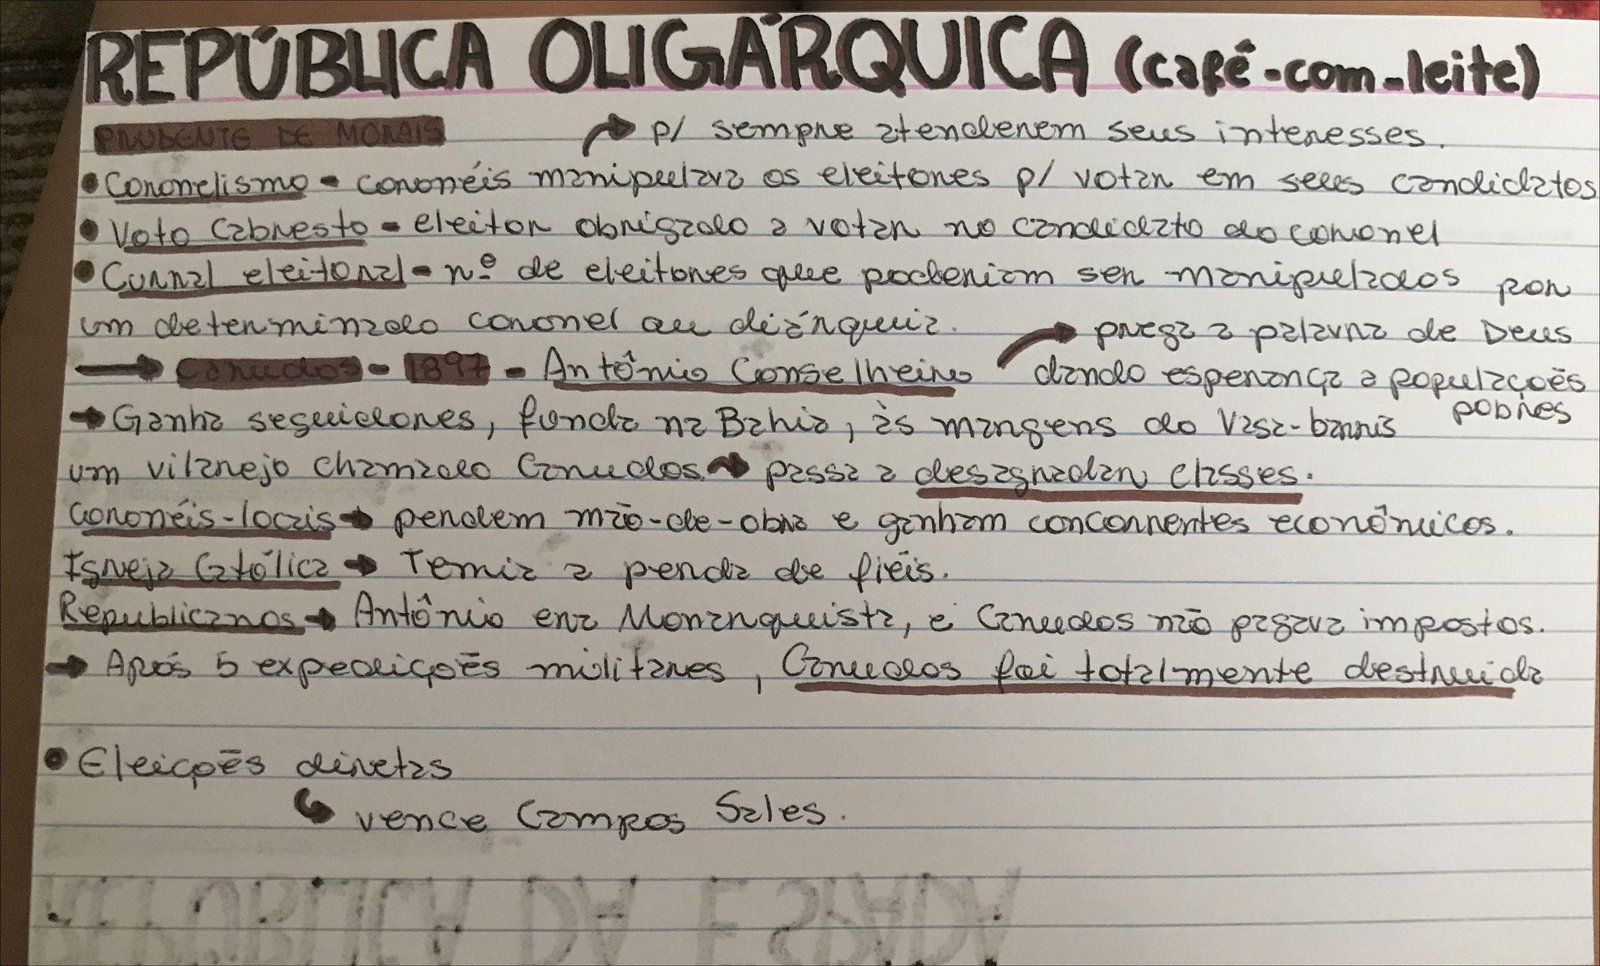 REPÚBLICA OLIGÁRQUICA (café-com-leite)
PRUDENTE DE MORAIS
p/ sempre atenderem seus interesses.
• Coronelismo - coronéis manipulava os eleitores p/ votar em seus candidatos
• Voto Cabresto - eleitor obrigado a votar no candidato do coronel
• Curral eleitoral - nº de eleitores que poderiam ser manipulados por
um determinado coronel ou oligarquia.
→ prega a palavra de Deus
→ Canudos - 1897 - Antônio Conselheiro
dando esperança a populações
pobres
→ Ganha seguidores, funda na Bahia, às margens do Vasa-barris
um vilarejo chamado Canudos → passa a desagradar classes.
Coronéis-locais → perdem mão-de-obra e ganham concorrentes econômicos.
Igreja Católica → Temia a perda de fiéis.
Republicanos → Antônio era Monarquista, e Canudos não pagava impostos.
→ Após 5 expedições militares, Canudos foi totalmente destruida
• Eleições diretas
↳ vence Campos Sales.
REPÚBLICA DA ESPADA